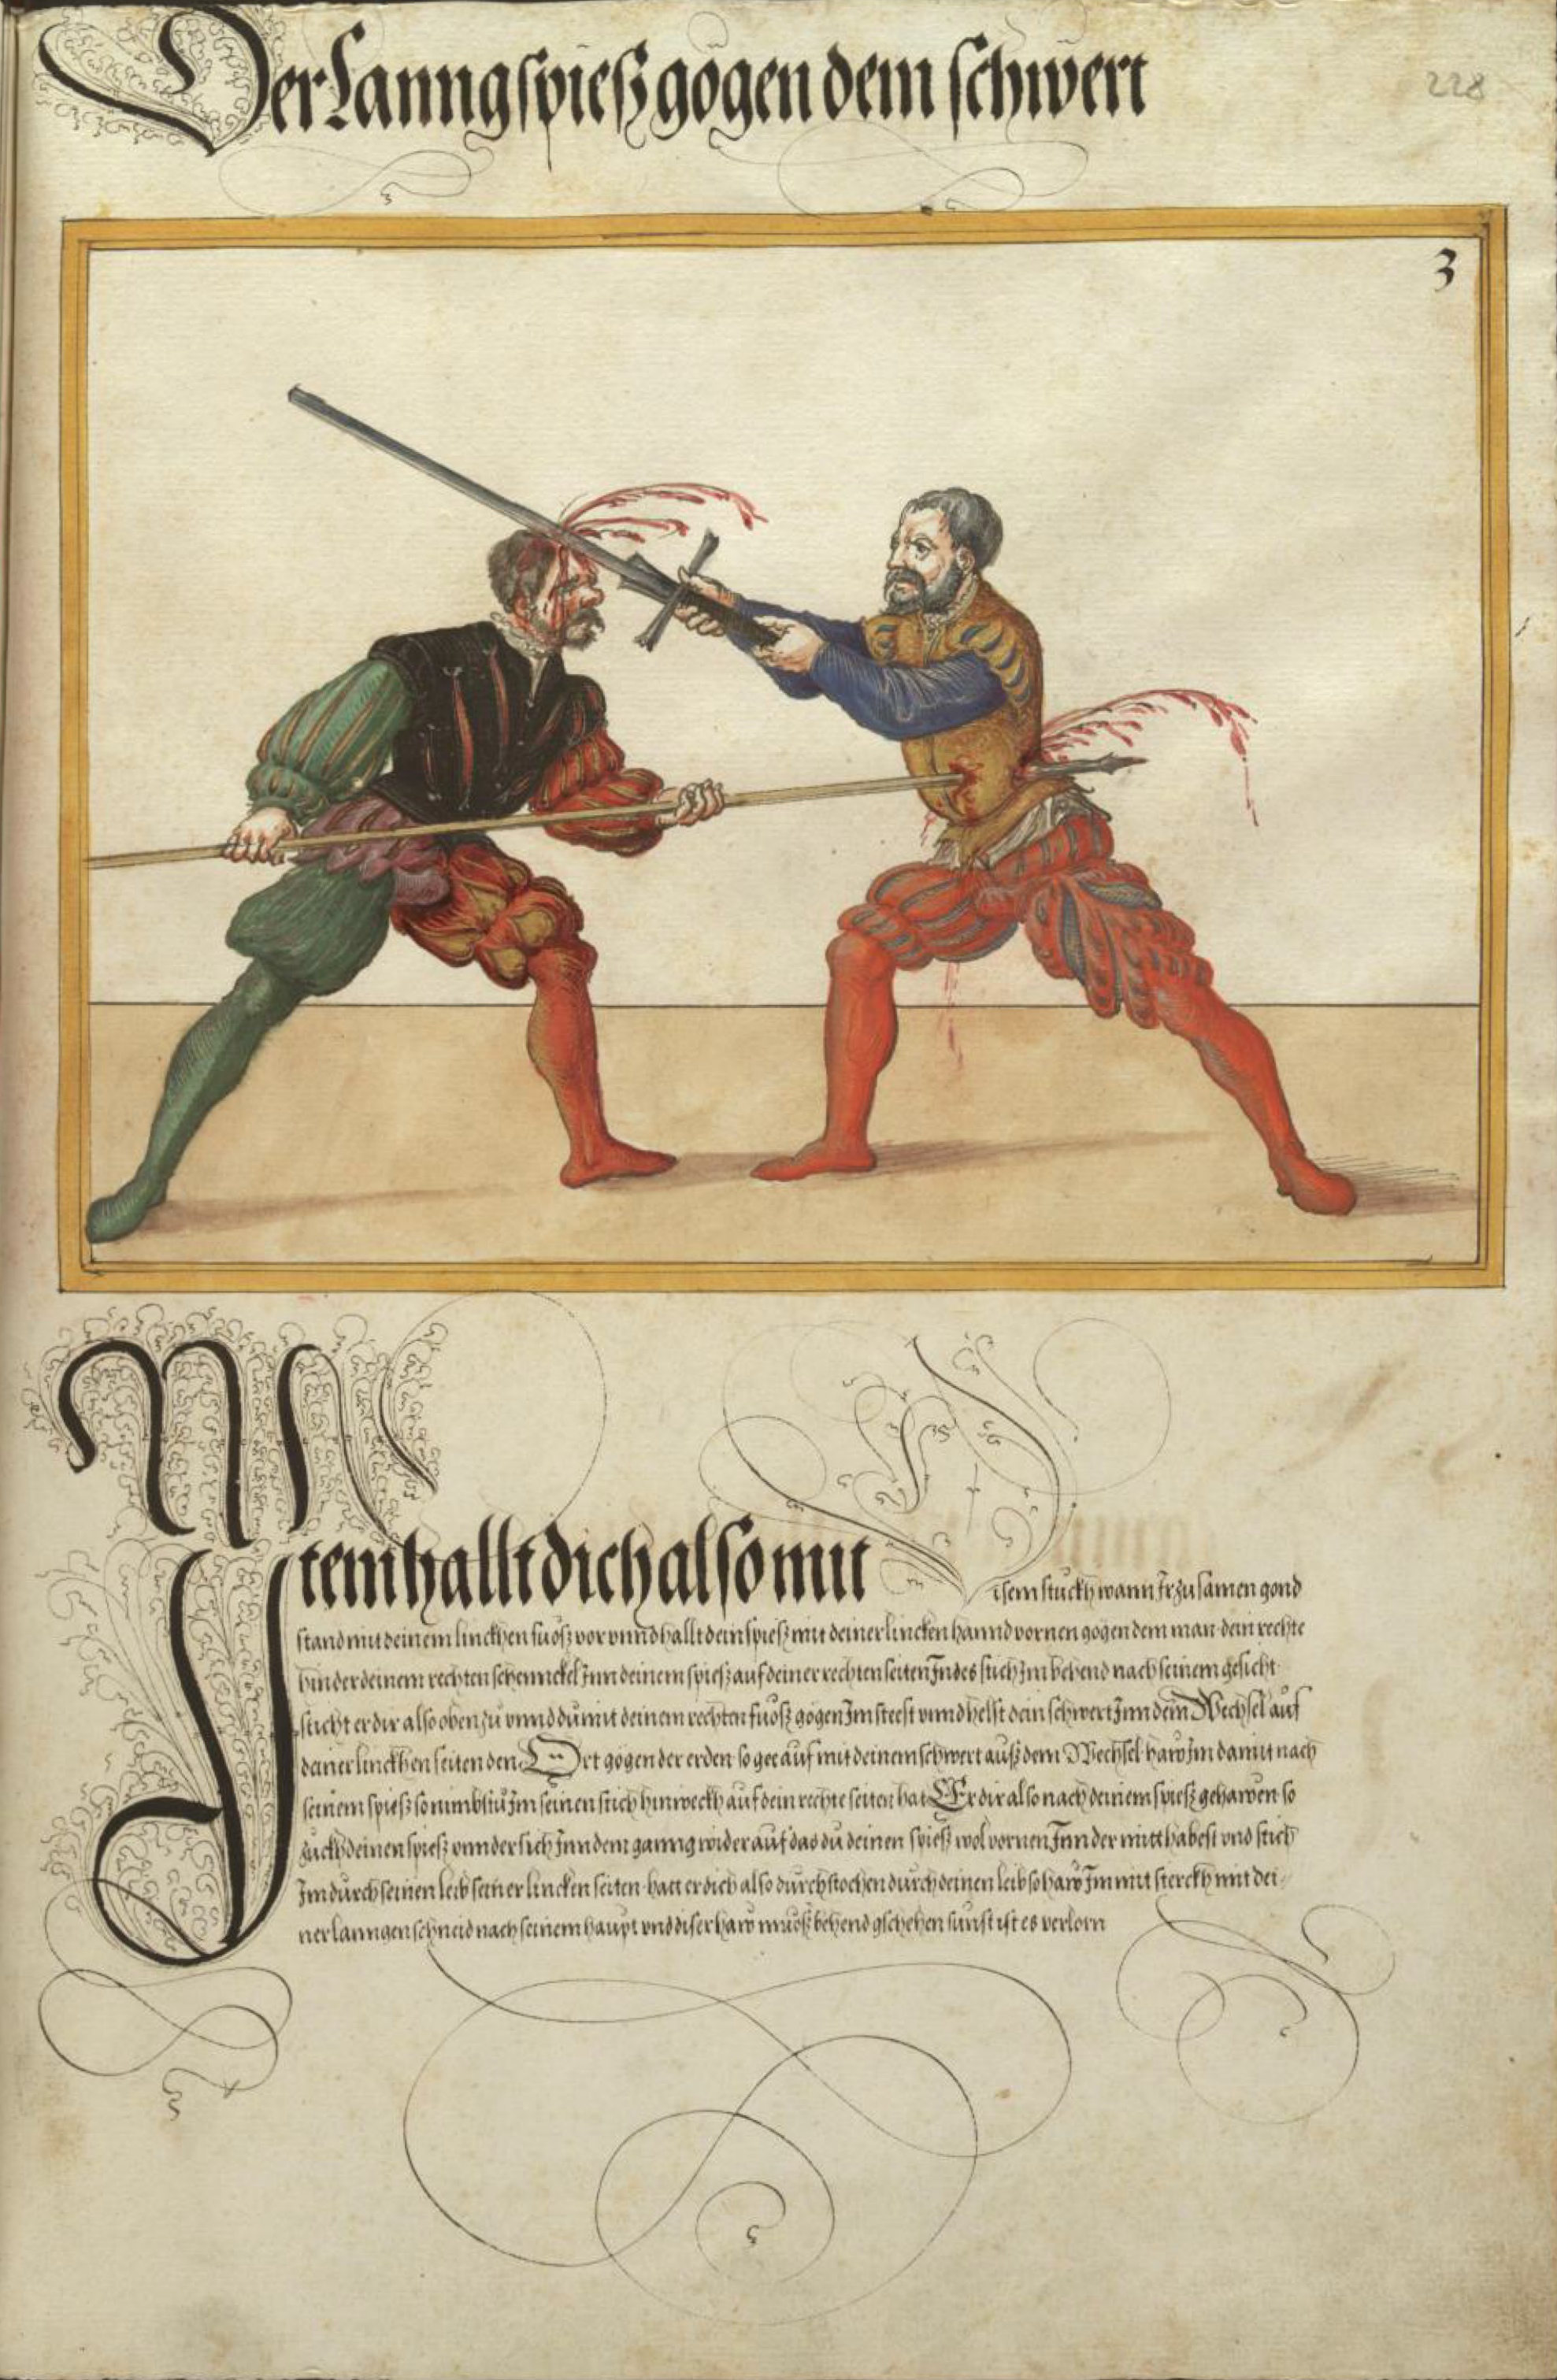 Der Lanngspiesz gögen dem schwert
228
3
Item hallt dich also mit
disem stuckh wann Ir zusamen gond
stand mit deinem linckhen fuosz vor vnnd hallt dein spiesz mit deiner lincken hannd vornen gögen dem man dein rechte
hinder deinem rechten schennckel Inn deinem spiesz auf deiner rechten seiten Indes stich Im behend nach seinem gesicht
sticht er dir also oben zu vnnd du mit deinem rechten fuosz gögen Im steest vnnd helst dein schwert Inn dem Wechsel auf
deiner linckhen seiten den Ort gögen der erden so gee auf mit deinem schwert ausz dem Wechsel haw Im damit nach
seinem spiesz so nimbstu Im seinen stich hinweckh auf dein rechte seiten hat Er dir also nach deinem spiesz gehawen so
zuckh deinen spiesz vnnder sich Inn dem ganng wider auf das du deinen spiesz wol vornen Inn der mitt habest vnd stich
Im durch seinen leib seiner lincken seiten hatt er dich also durchstochen durch deinen leib so haw Im mit sterckh mit dei-
ner lanngen schneid nach seinem haupt vnd diser haw muosz behend gschehen sunst ist es verlorn